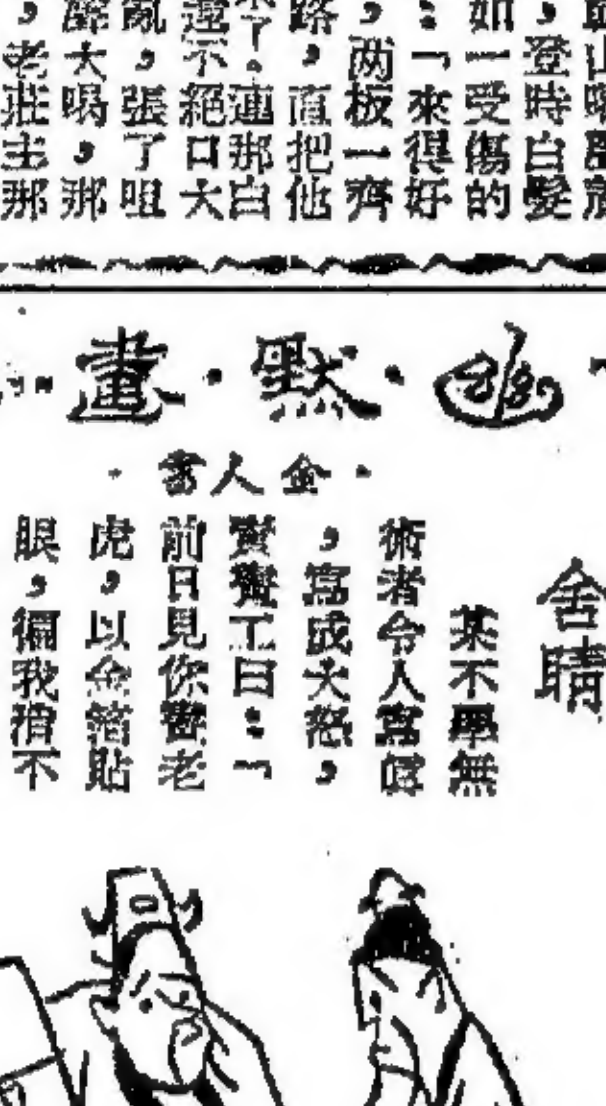 ，登時白髮
如一受傷的
：「來得好
，两板一齊
路，直把他
了。連那白
還不絕口大
亂，張了咀
醉大喝，那
，老莊主那
幽·默·畫
·金人畫·
舍睛
某不學無
術者令人寫眞
，寫成大怒，
責畫工曰：「
前日見你畫老
虎，以金箔貼
眼，徧我捎不